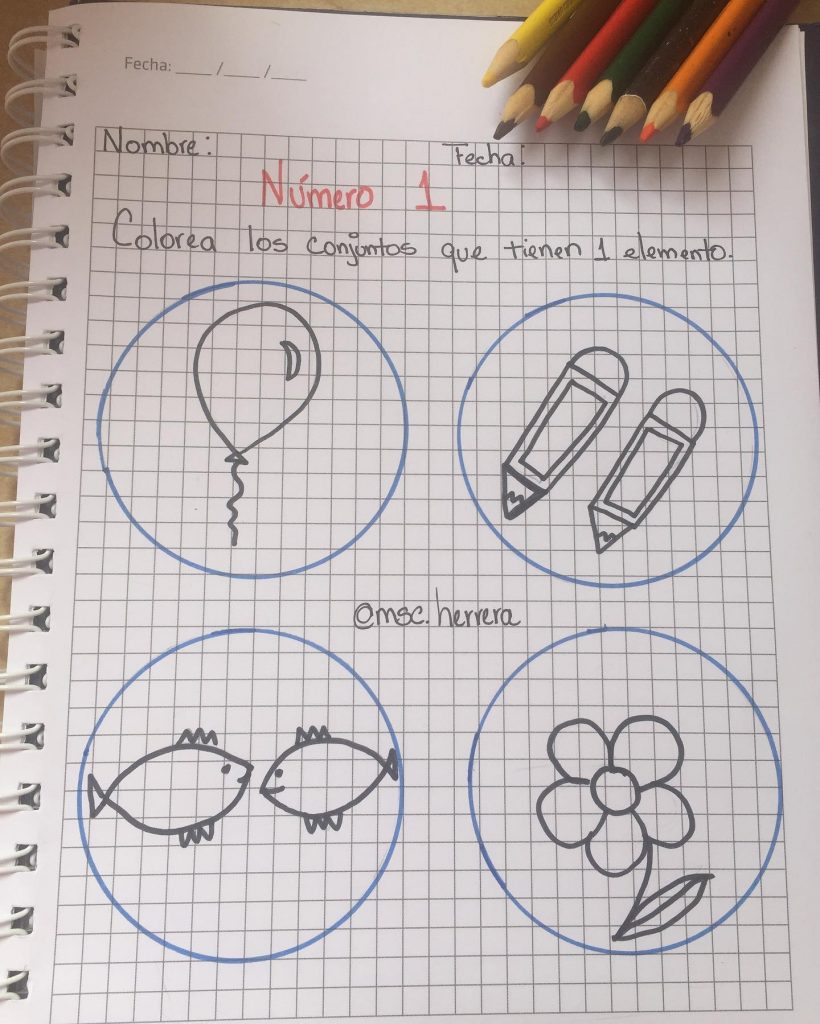 Fecha: ___/___/___
Nombre: Fecha:
Número 1
Colorea los conjuntos que tienen 1 elemento.
@msc.herrera